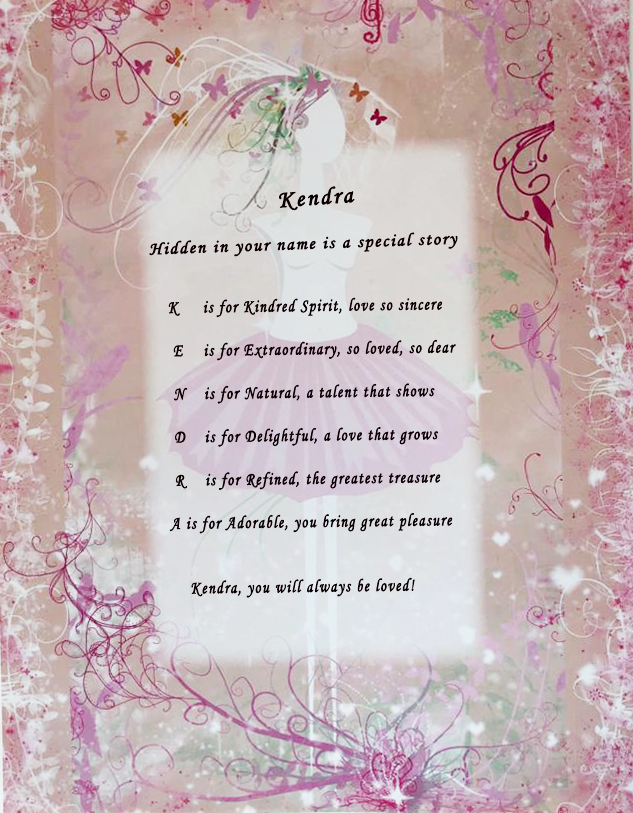 Kendra
Hidden in your name is a special story
K is for Kindred Spirit, love so sincere
E is for Extraordinary, so loved, so dear
N is for Natural, a talent that shows
D is for Delightful, a love that grows
R is for Refined, the greatest treasure
A is for Adorable, you bring great pleasure
Kendra, you will always be loved!